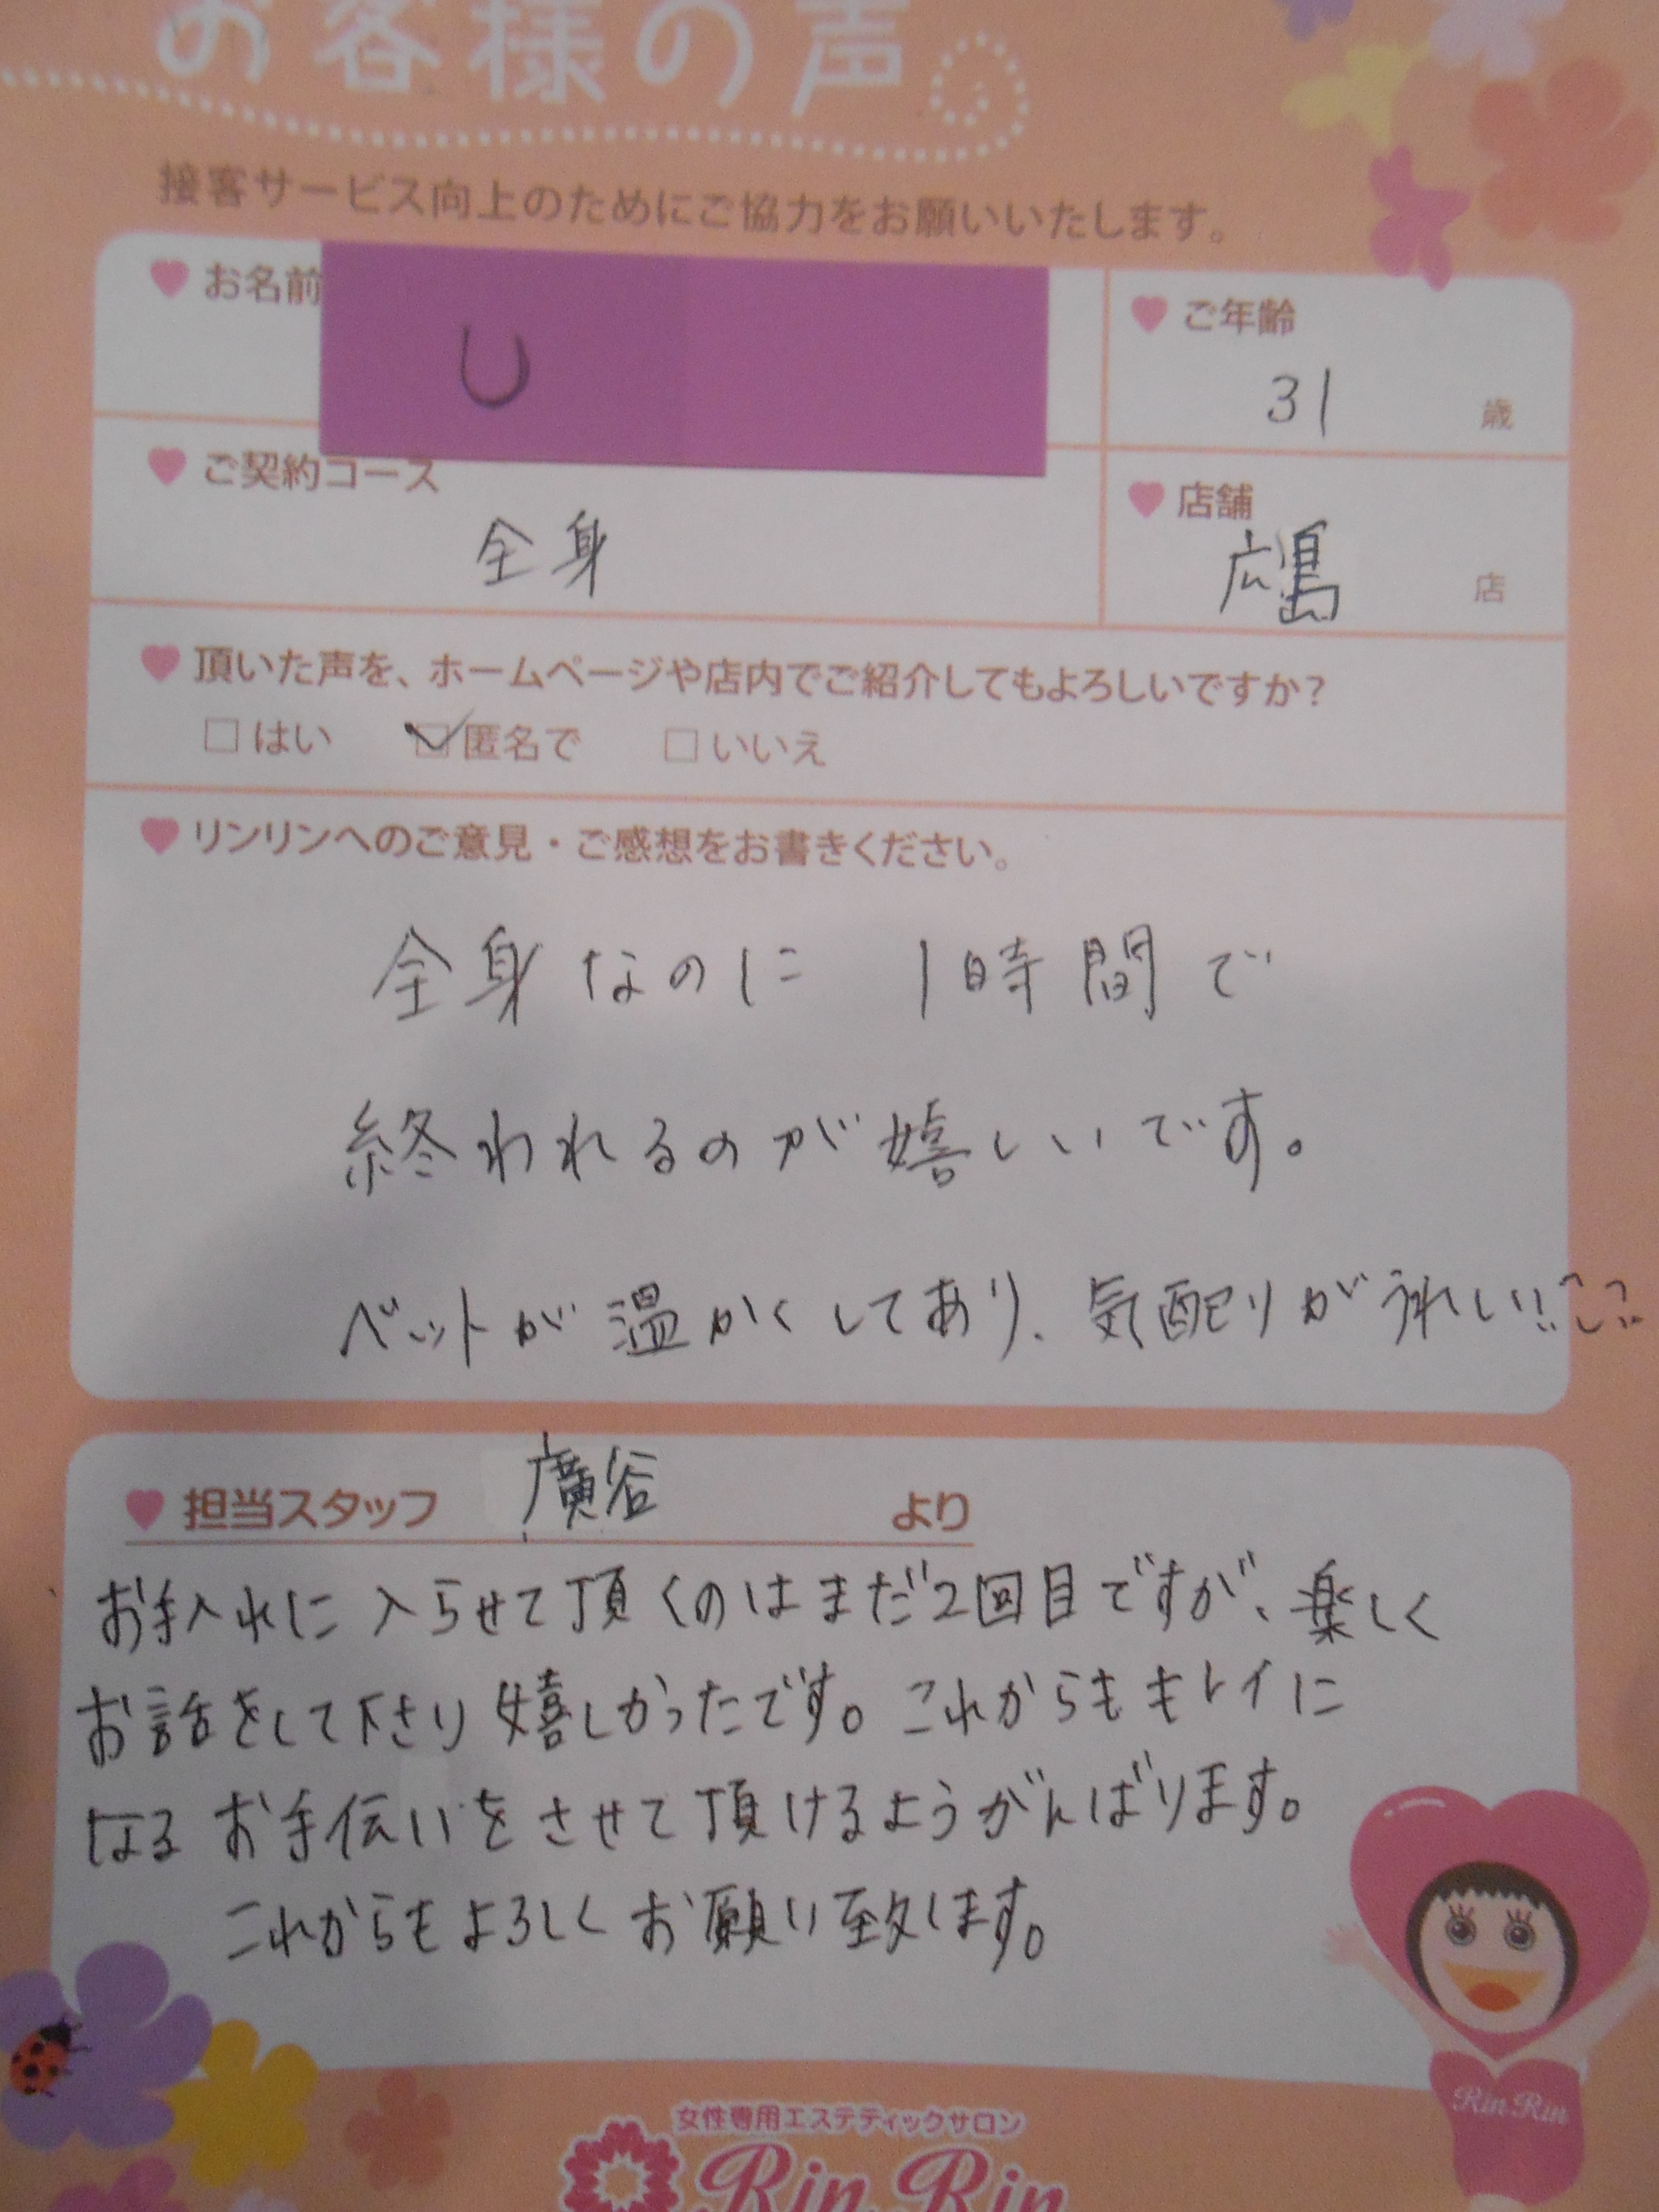 お客様の声。
接客サービス向上のためにご協力をお願いいたします。
お名前
U
ご年齢
31 歳
ご契約コース
全身
店舗
広島 店
頂いた声を、ホームページや店内でご紹介してもよろしいですか？
□はい ☑匿名で □いいえ
リンリンへのご意見・ご感想をお書きください。
全身なのに 1時間で
終われるのが嬉しいです。
ベットが温かくしてあり、気配りがうれしい!!
担当スタッフ 廣谷 より
お手入れに入らせて頂くのはまだ2回目ですが、楽しく
お話をして下さり嬉しかったです。これからもキレイに
なるお手伝いをさせて頂けるようがんばります。
これからもよろしくお願い致します。
Rin Rin
女性専用エステティックサロン
Rin Rin